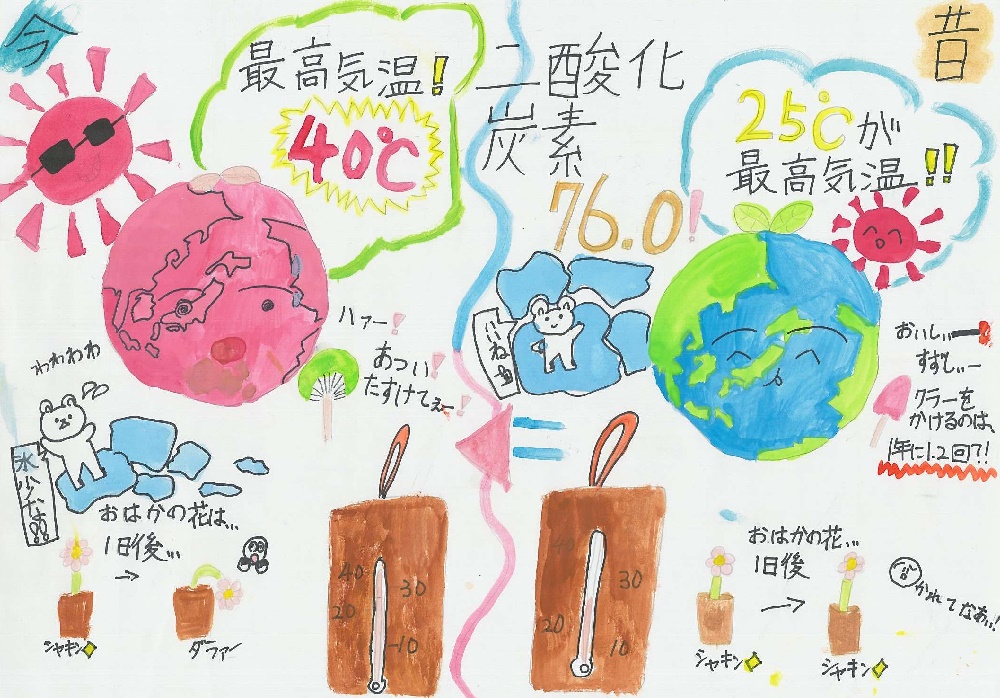 今
最高気温！
40℃
ハァー！
あつい！
たすけてぇー！
わわわわ
氷少なっ!!
おはかの花は、、
1日後、、、
→
シャキン
ダファー
40
30
20
10
二酸化
炭素
76.0！
昔
25℃が
最高気温！！
いいねぇ
おいしぃー
すずしぃー
クラーを
かけるのは、
1年に1.2回?！
40
30
20
10
おはかの花、、、
1日後
→
シャキン
シャキン
かれてなあい！